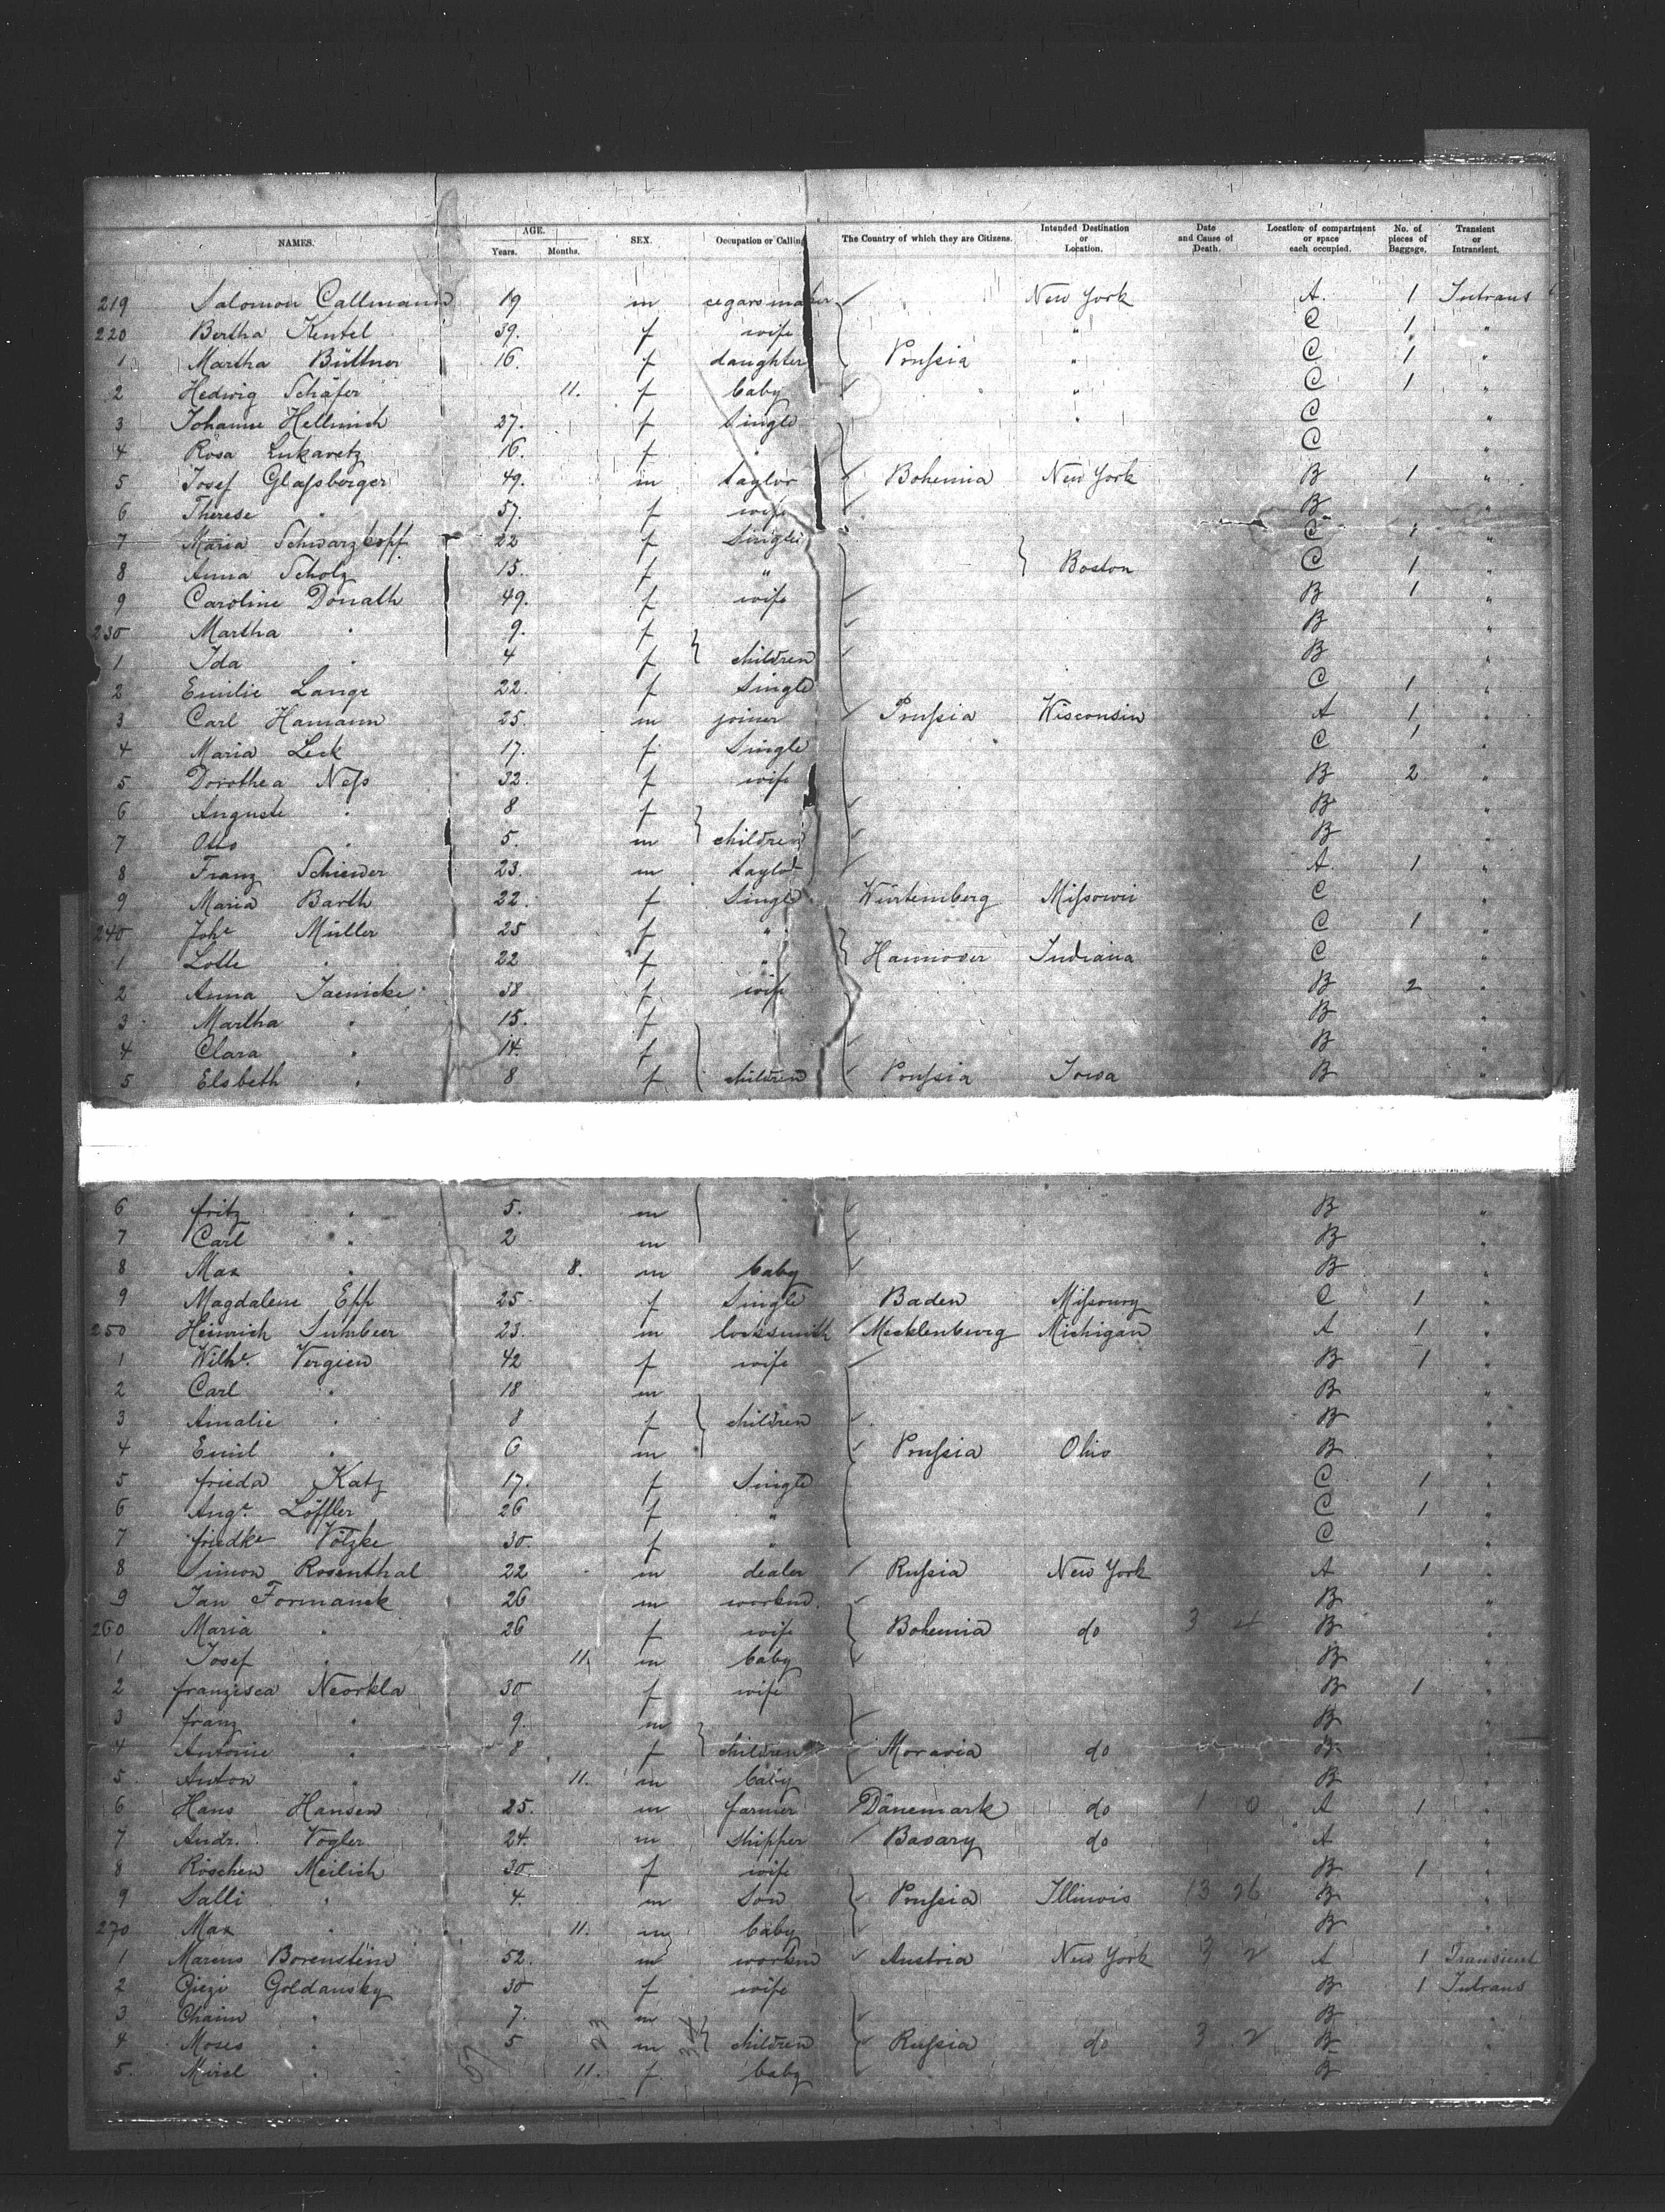 NAMES. AGE. Years. Months. SEX. Occupation or Calling The Country of which they are Citizens. Intended Destination or Location. Date and Cause of Death. Location of compartment or space each occupied. No. of pieces of Baggage. Transient or Intransient.
219 Salomon Callmann 19 m cegarsmaker New York A. 1 Intrans
220 Bertha Kentel 39. f wife " C 1 "
1 Martha Büttner 16. f daughter Prussia " C 1 "
2 Hedwig Schäfer 11. f baby " C 1 "
3 Johanne Hellmich 27. f Single " C "
4 Rosa Lukavetz 16. f " C "
5 Josef Glassberger 49. m taylor Bohemia New York B 1 "
6 Therese " 57. f wife B "
7 Maria Schwarzkopf 22 f Single C 1 "
8 Anna Scholz 15. f " } Boston C 1 "
9 Caroline Donath 49. f wife B 1 "
230 Martha " 9. f B "
1 Ida " 4 f } children B "
2 Emilie Lange 22. f Single C 1 "
3 Carl Hamann 25. m joiner Prussia Wisconsin A 1 "
4 Maria Leck 17. f Single C 1 "
5 Dorothea Ness 32. f wife B 2 "
6 Auguste " 8 f B "
7 Otto " 5. m } children B "
8 Franz Schiewer 23. m taylor A. 1 "
9 Maria Barth 22. f Single Würtemberg Missouri C "
240 Johe Müller 25 f " C 1 "
1 Lotte " 22 f " } Hannover Indiana C "
2 Anna Jaenicke 38 f wife B 2 "
3 Martha " 15. f B "
4 Clara " 14. f B "
5 Elsbeth " 8 f children Prussia Iowa B "
6 fritz " 5. m B "
7 Carl " 2 m B "
8 Max " 8. m baby B "
9 Magdalene Epp 25 f Single Baden Missoury C 1 "
250 Heinrich Suhrbeer 23. m locksmith Mecklenburg Michigan A 1 "
1 Wilhe. Vergien 42 f wife B 1 "
2 Carl " 18 m B "
3 Amalie " 8 f children B "
4 Emil " 6 m Prussia Ohio B "
5 frieda Katz 17. f Single C 1 "
6 Auge. Löffler 26 f " C 1 "
7 friedke Völzke 30. f " C "
8 Simon Rosenthal 22 m dealer Russia New York A 1 "
9 Jan Formanek 26 m workm. B "
260 Maria " 26 f wife Bohemia do 3 4 B "
1 Josef " 11. m baby B "
2 franzisca Neorkla 30 f wife B 1 "
3 franz " 9. m B "
4 Antonie " 8 f children Moravia do B "
5 Anton " 11. m baby B "
6 Hans Hansen 25. m farmer Dänemark do 1 0 A 1 "
7 Andr. Vogler 24. m shipper Bavary do A "
8 Röschen Meilich 30. f wife B 1 "
9 Salli " 4. m Son Prussia Illinois 13 26 B "
270 Max " 11. m baby B "
1 Marcus Borenstein 52. m workm Austria New York 3 2 A 1 Transient
2 Giezi Goldansky 30 f wife B 1 Intrans
3 Chaim " 7. m B "
4 Moses " 5 m } children Russia do 3 2 B "
5. Mirel " 11. f baby B "